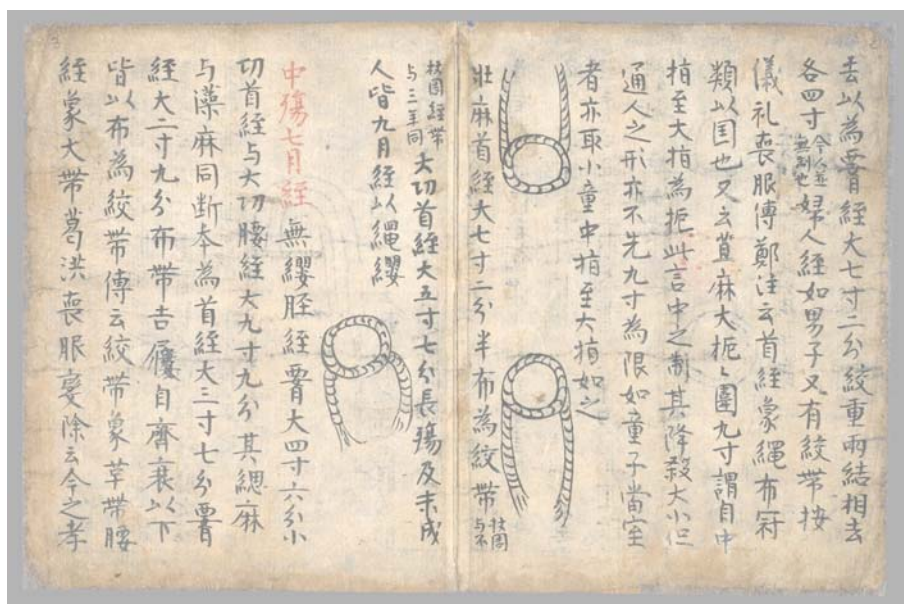 去以為䝿絰大七寸二分絞重兩結相去
各四寸今人並無制也婦人絰如男子又有絞帶按
儀礼喪服傳鄭注云首絰象緇布冠
類以囯也又云苴麻大扼〻圍九寸謂自中
指至大指為扼此言中之制其降殺大小但
通人之形亦不先九寸為限如童子當室
者亦取小童中指至大指如之
壮麻首絰大七寸二分半布為絞帶扶圎与不
扶圎絰帶与三年同大切首絰大五寸七分長殤及未成
人皆九月絰以繩纓
中殤七月絰無纓胵絰䝿大四寸六分小
切首絰与大切腰絰大九寸九分其緦麻
与藻麻同断夲為首絰大三寸七分䝿
絰大二寸九分布帶吉屨自齊衰以下
皆以布為絞帶傳云絞帶象草帶腰
絰象大帶葛洪喪服變除云今之孝